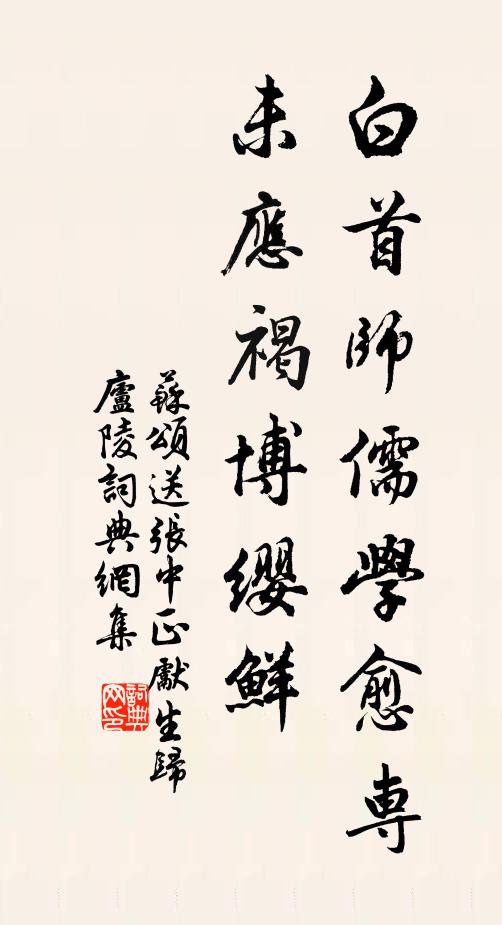 白首師儒學愈専
未應褐博纓鮮
蘇頌送張中正獻生歸
廬陵詞典網集
詞典网印